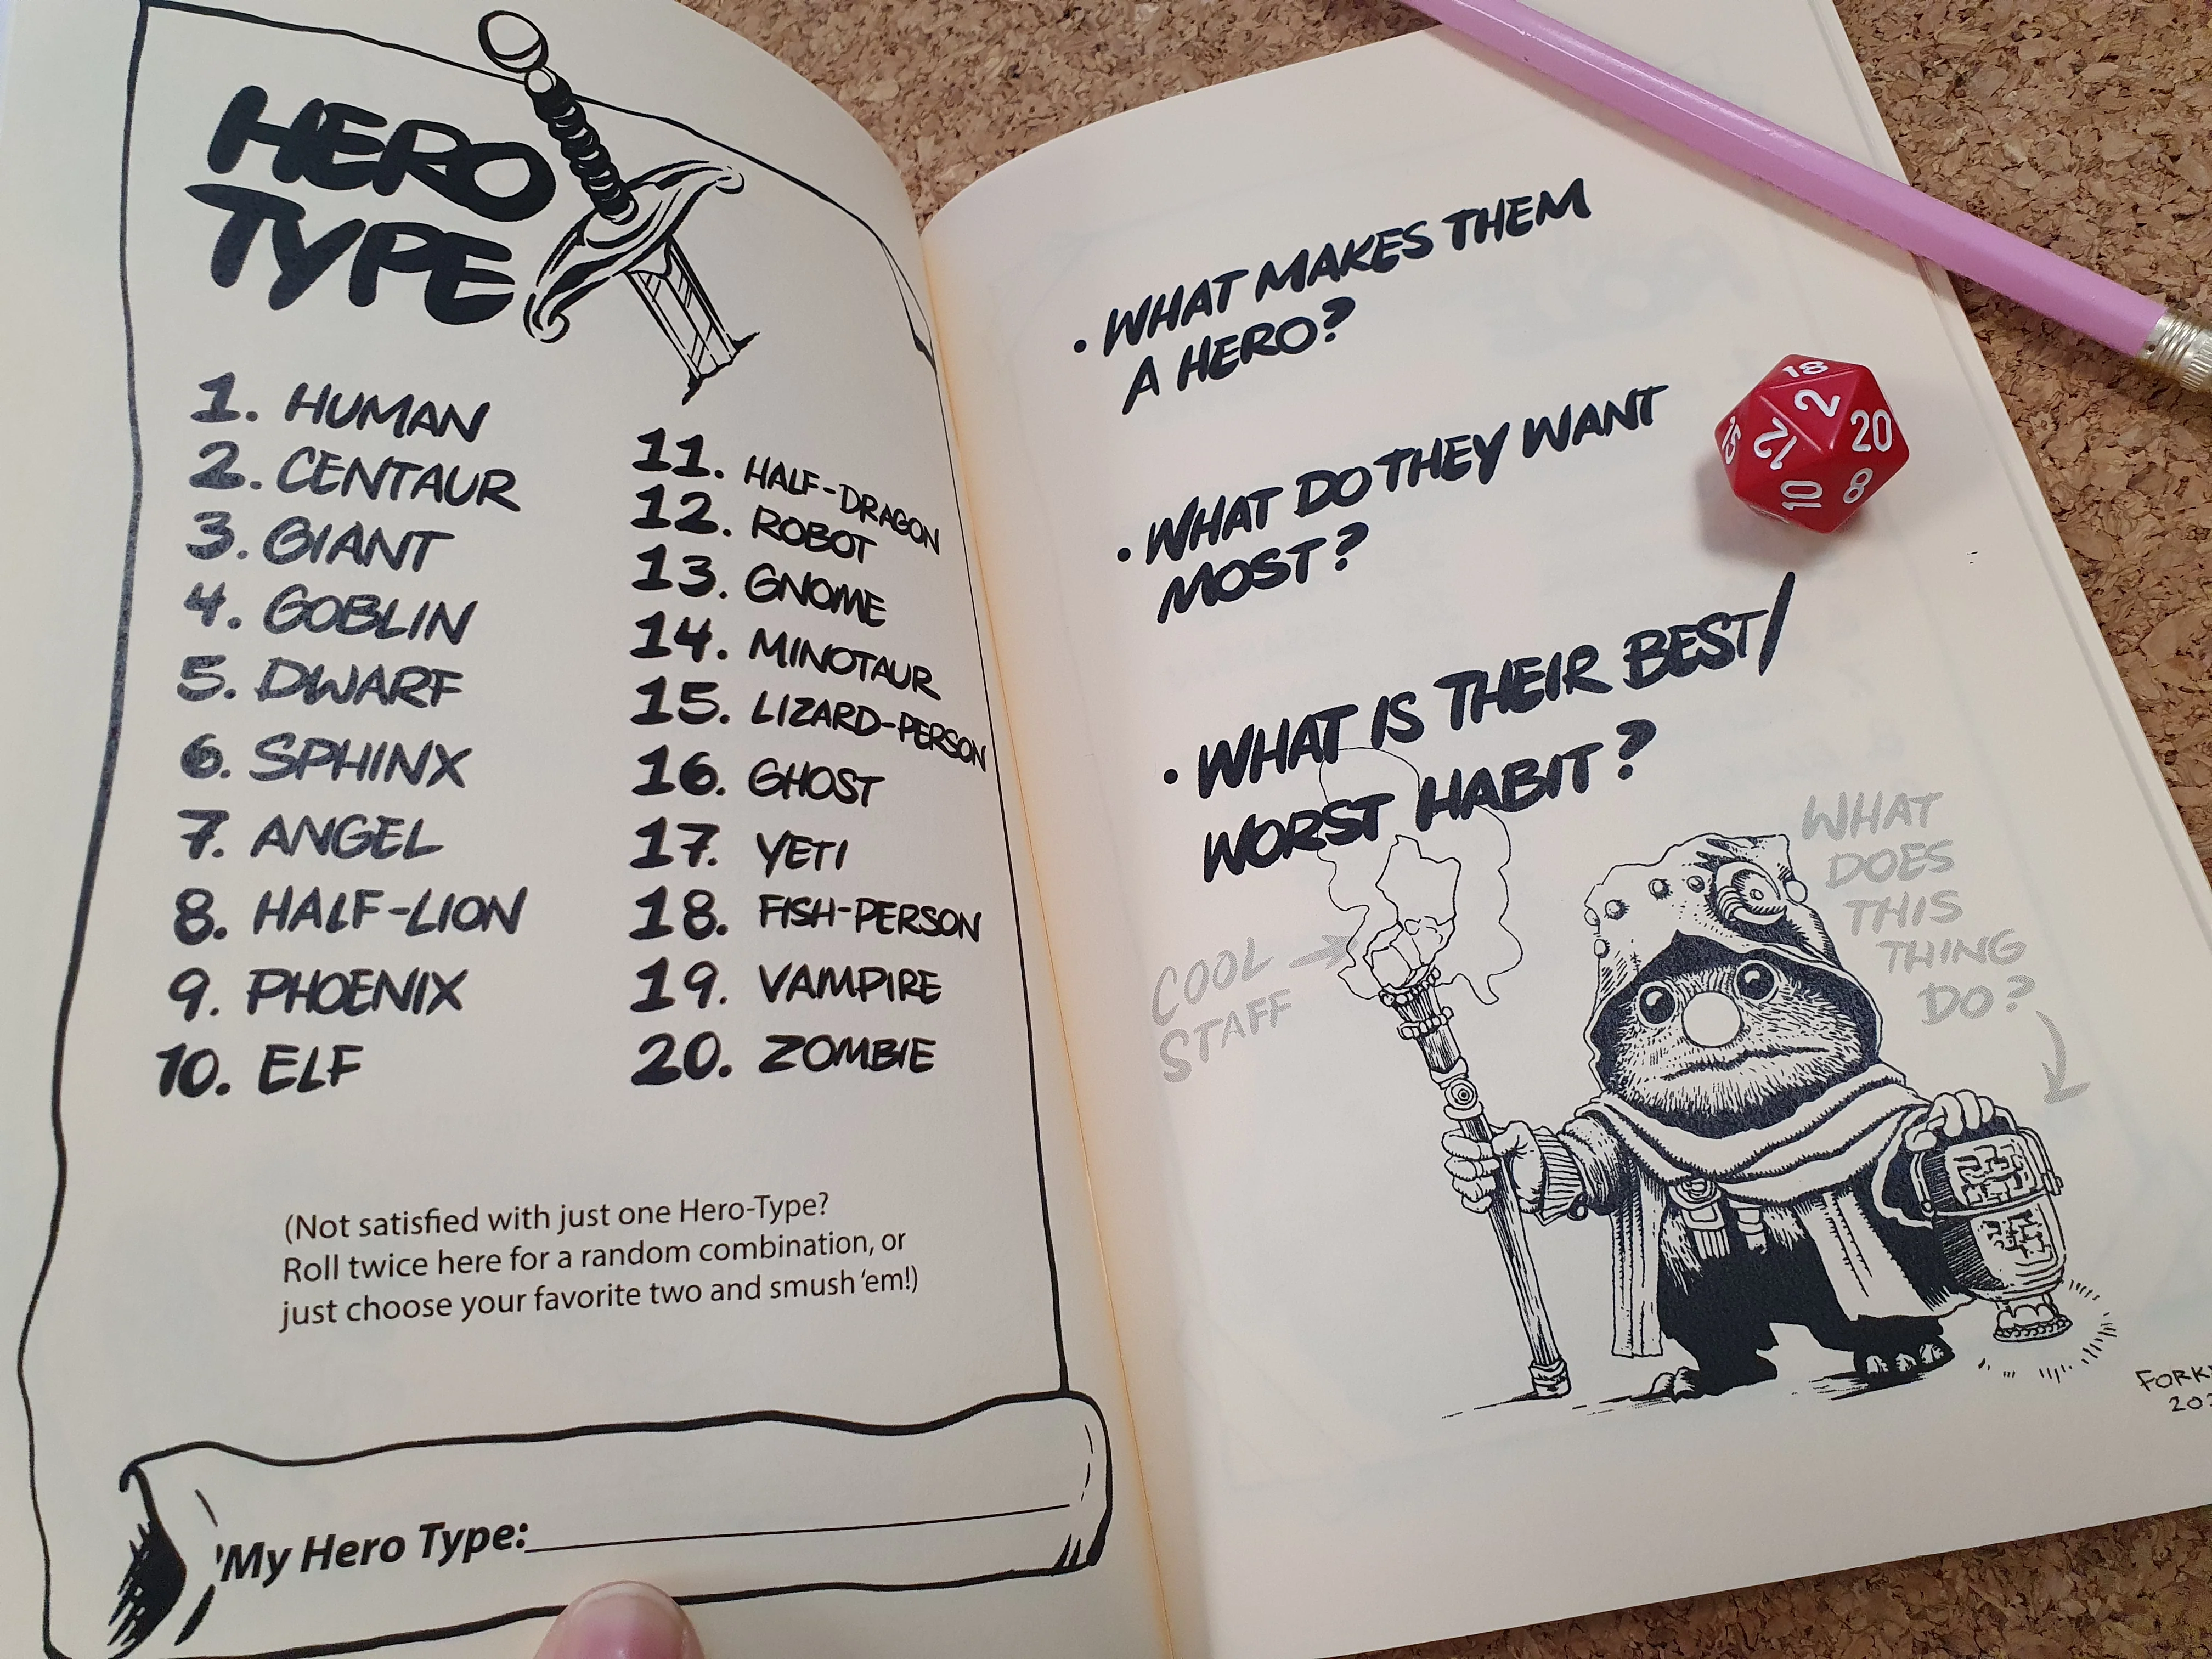 HERO
TYPE
1. HUMAN
2. CENTAUR
3. GIANT
4. GOBLIN
5. DWARF
6. SPHINX
7. ANGEL
8. HALF-LION
9. PHOENIX
10. ELF
11. HALF-DRAGON
12. ROBOT
13. GNOME
14. MINOTAUR
15. LIZARD-PERSON
16. GHOST
17. YETI
18. FISH-PERSON
19. VAMPIRE
20. ZOMBIE
(Not satisfied with just one Hero-Type?
Roll twice here for a random combination, or
just choose your favorite two and smush 'em!)
My Hero Type:
• WHAT MAKES THEM
A HERO?
• WHAT DO THEY WANT
MOST?
• WHAT IS THEIR BEST/
WORST HABIT?
COOL
STAFF
WHAT
DOES
THIS
THING
DO?
18
2
20
15
12
10
8